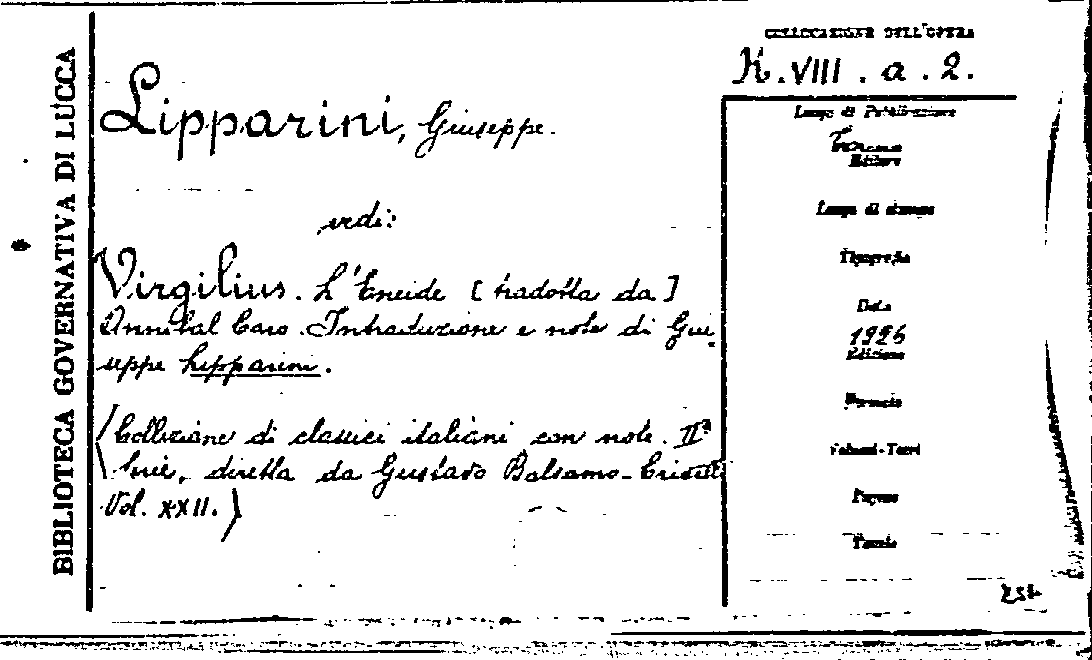 BIBLIOTECA GOVERNATIVA DI LUCCA
COLLOCAZIONE DELL'OPERA
K. VIII. a. 2.
Lipparini, Giuseppe.
vedi:
Virgilius. L'Eneide [tradotta da]
Annibal Caro. Introduzione e note di Giu
seppe Lipparini.
(Collezione di classici italiani con note. IIª
Serie, diretta da Gustavo Balsamo-Crivelli
Vol. XXII.)
Luogo di Pubblicazione
Torino
Editore
Luogo di stampa
Tipografia
Data
1926
Edizione
Formato
Volumi-Tomi
Pagine
Tavole